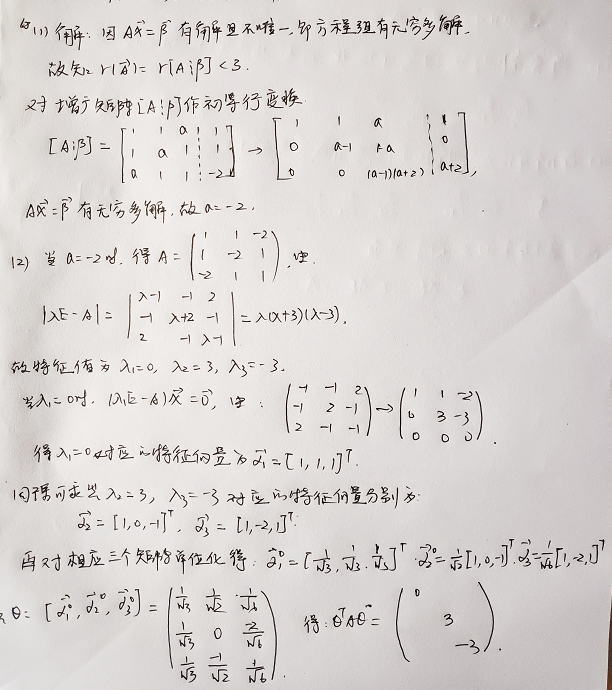 (1) 解: 因 Ax⃗=β⃗ 有解且不唯一, 即方程组有无穷多解,
故知 r(A⃗)= r[A⋮β] < 3.
对增广矩阵[A⋮β]作初等行变换.
[A⋮β] = [1 1 a ⋮ 1; 1 a 1 ⋮ 1; a 1 1 ⋮ -2] → [1 1 a ⋮ 1; 0 a-1 1-a ⋮ 0; 0 0 (a-1)(a+2) ⋮ a+2],
Ax⃗=β⃗ 有无穷多解, 故 a=-2.
(2) 当 a=-2时, 得 A = (1 1 -2; 1 -2 1; -2 1 1), 由
|λE-A| = |λ-1 -1 2; -1 λ+2 -1; 2 -1 λ-1| = λ(λ+3)(λ-3),
故特征值为 λ₁=0, λ₂=3, λ₃=-3.
当λ₁=0时, (λ₁E-A)x⃗=0⃗, 由: (-1 -1 2; -1 2 -1; 2 -1 -1) → (1 1 -2; 0 3 -3; 0 0 0).
得 λ₁=0 对应的特征向量为 α⃗₁=[1, 1, 1]ᵀ.
同理可求出 λ₂=3, λ₃=-3 对应的特征向量分别为:
α⃗₂=[1,0,-1]ᵀ, α⃗₃=[1,-2,1]ᵀ.
再对相应三个单位化得: α⃗₁⁰=[1/√3, 1/√3, 1/√3]ᵀ α⃗₂⁰=1/√2[1,0,-1]ᵀ, α⃗₃⁰=1/√6[1,-2,1]ᵀ
θ= [α⃗₁⁰, α⃗₂⁰, α⃗₃⁰] = (1/√3 1/√2 1/√6; 1/√3 0 2/√6; 1/√3 -1/√2 1/√6). 得: θᵀAθ = (0 3 -3).